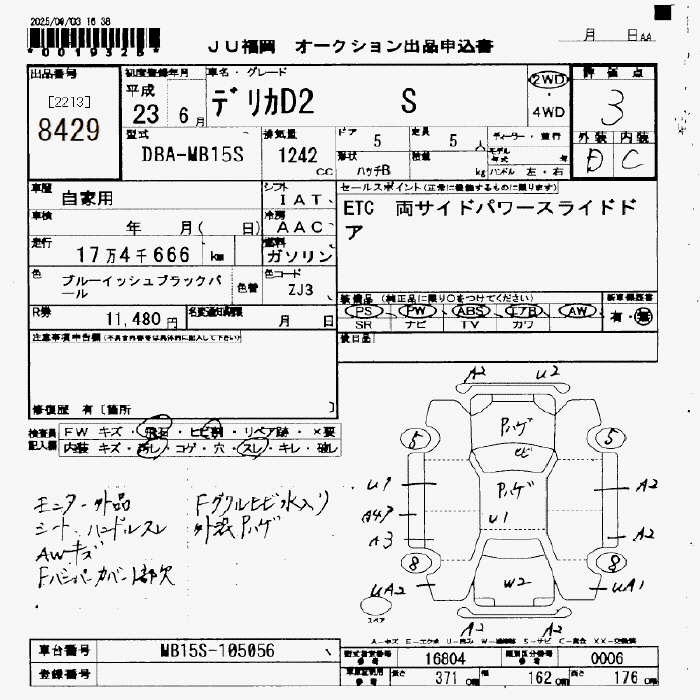 2025/09/03 16 38
*00193528*
JU福岡 オークション出品申込書
月 日AA
出品番号
[2213]
8429
初度登録年月
平成
23 6月
車名・グレード
デリカD2 S
2WD
・
4WD
評価点
3
外装 内装
D C
型式
DBA-MB15S
排気量
1242
cc
ドア
5
定員
5 人
形状
ハッチB
積載
kg
ディーラー・並行
モデル
年式
年
ハンドル 左・右
車歴
自家用
シフト
IAT
車検
年 月( 日)
冷房
AAC
走行
17万4千666 km
燃料
ガソリン
色
ブルーイッシュブラックパール
色替
色コード
ZJ3
セールスポイント(正常に機能するものに限ります)
ETC 両サイドパワースライドドア
R券
11,480 円
名変通知期限
月 日
装備品 (純正品に限り○をつけてください)
PS・PW・ABS・エアB・AW・
SR ナビ TV カワ
新車保証書
有・無
後日品
注意事項申告欄(不具合内容等は具体的に記入して下さい)
修復歴 有〔箇所 〕
検査員
記入欄
FW キズ・飛石・ヒビ割・リペア跡・×要
内装 キズ・汚レ・コゲ・穴・スレ・キレ・破レ
モニター外品
シート、ハンドルスレ
AWキズ
Fバンパーカバー1部欠
Fフォグルヒビ水入り
外装Pハゲ
A2 U2
Pハゲ
ヒビ
5 5
Pハゲ
U1
U1
A2
A3
A2
8 8
UA2
W2
UA1
A2 A2
スペア
A-キズ E-エクボ U-凹み W-補修跡 S-サビ C-腐食 XX-交換済
車台番号
MB15S-105056
登録番号
型式指定番号
参考
16804
類別区分番号
参考
0006
車庫証明用
参考
長さ
371 0mm
幅
162 0mm
高さ
176 0mm